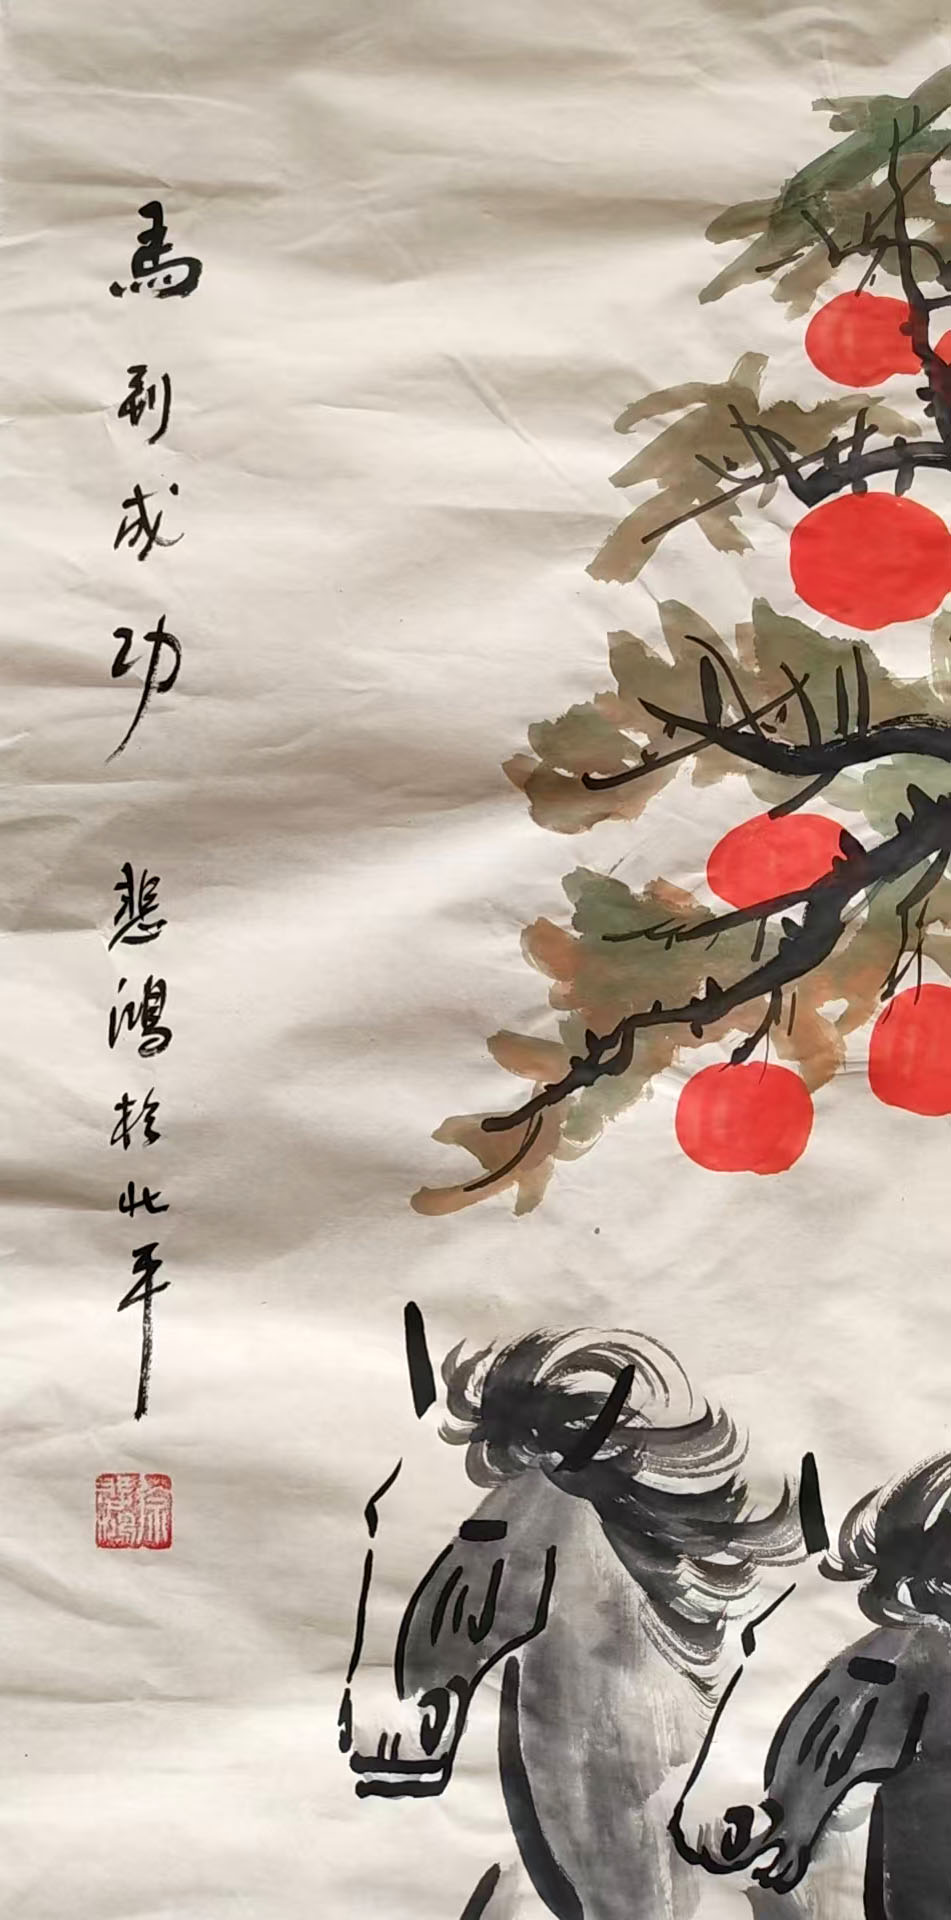 馬到成功
悲鴻於北平
徐悲鴻